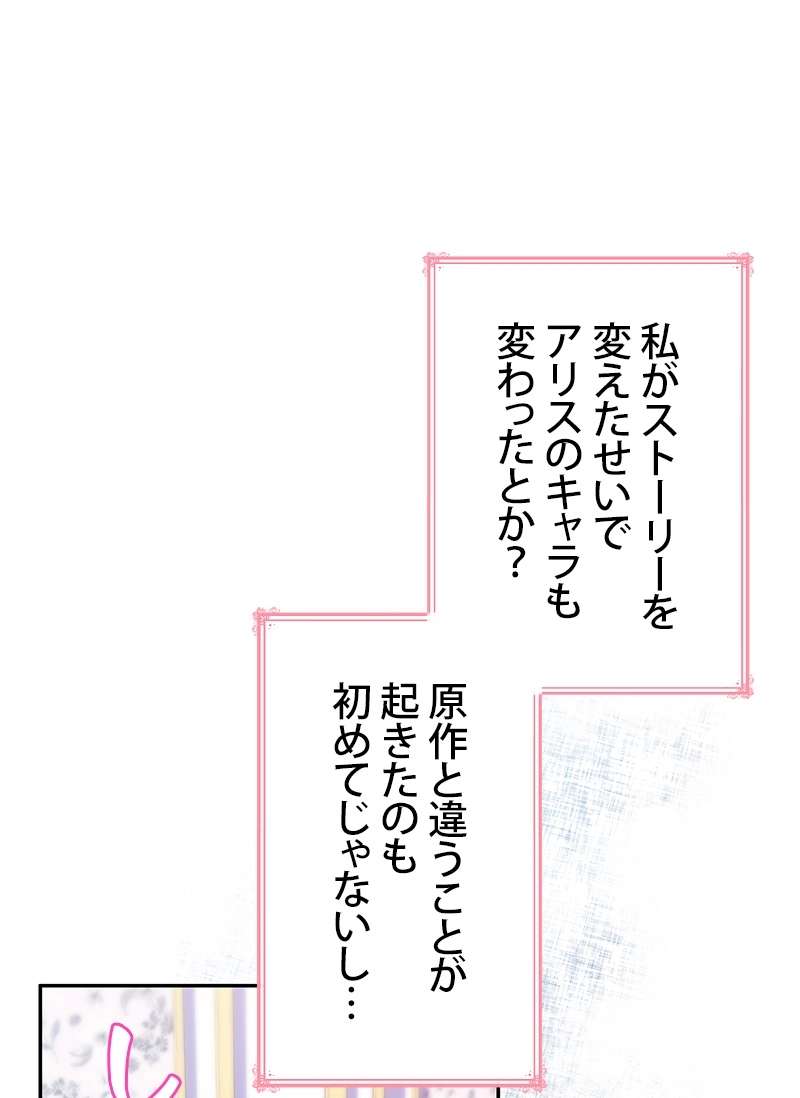 私がストーリーを
変えたせいで
アリスのキャラも
変わったとか？
原作と違うことが
起きたのも
初めてじゃないし…